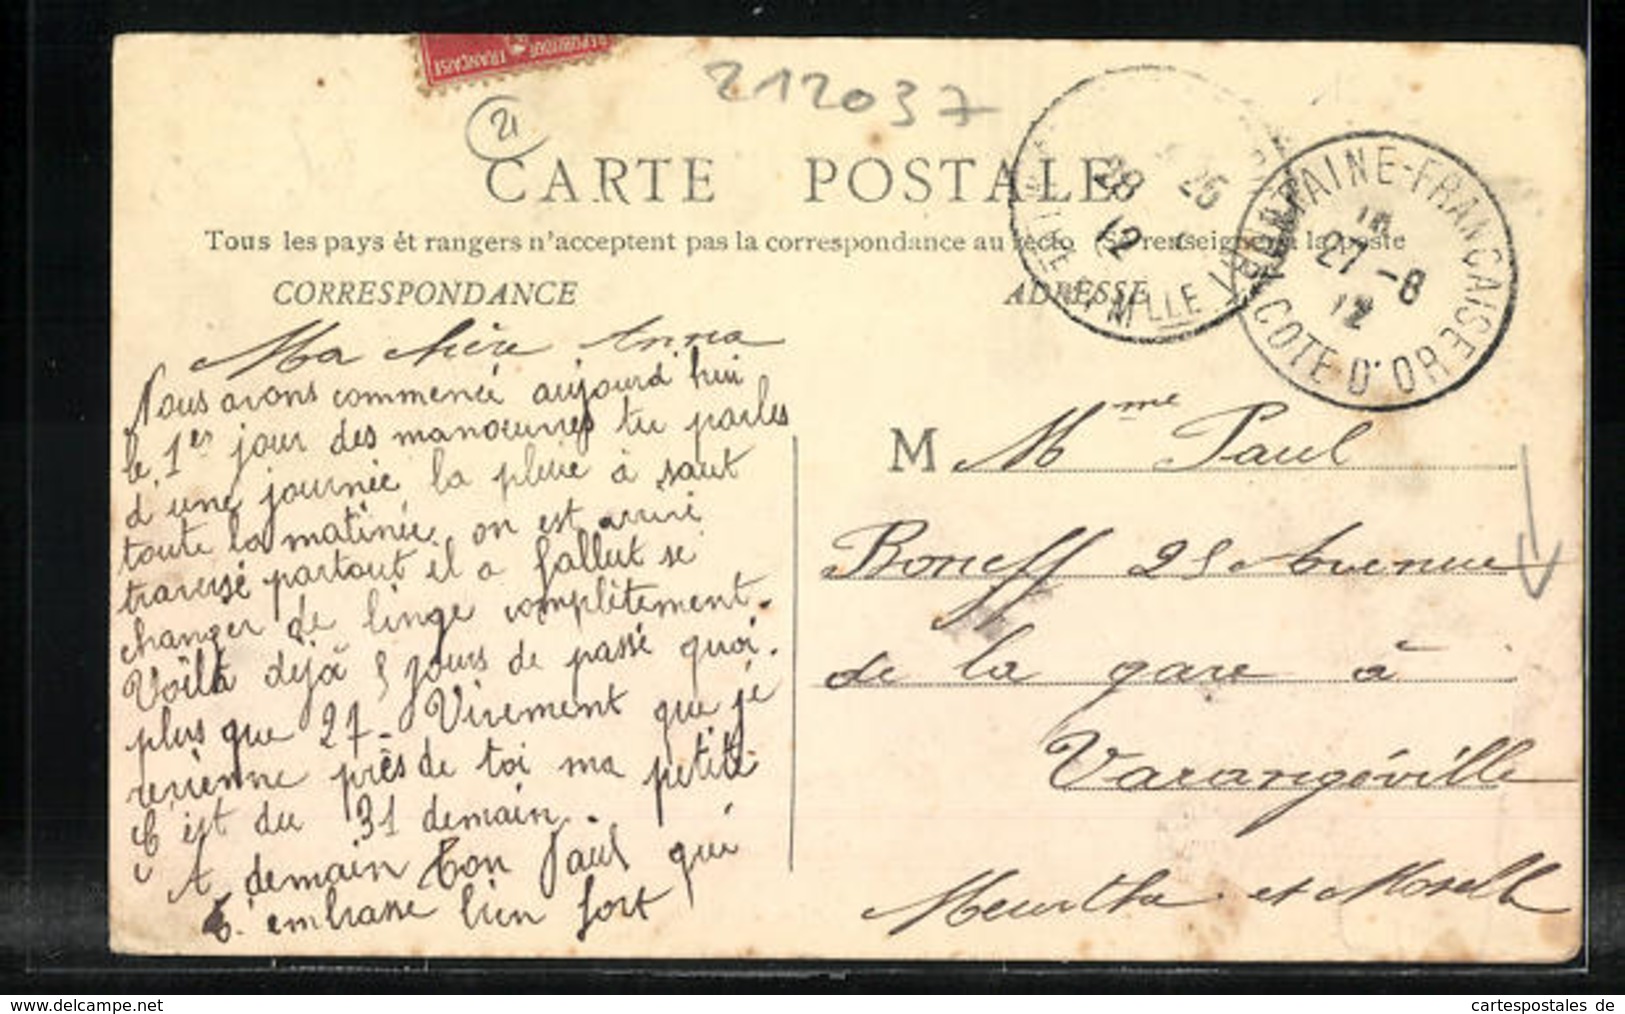 RÉPUBLIQUE
FRANÇAISE
212037
21
CARTE POSTALE
Tous les pays ét rangers n'acceptent pas la correspondance au recto (Se renseigner à la poste
CORRESPONDANCE
ADRESSE
28 26
12
FONTAINE-FRANÇAISE
27-8
12
COTE D'OR
Ma chère Anna
Nous avons commencé aujourd hui
le 1er jour des manoeuvres tu parles
d'une journée la pluie à saut
toute la matinée. on est arrivé
traversé partout il a fallut se
changer de linge complètement.
Voilà déjà 5 jours de passé quoi.
plus que 27. Vivement que je
revienne près de toi ma petite
C'est du 31 demain.
A demain Ton Paul qui
t'embrasse bien fort
M Mme Paul
Boneff 25 Avenue
de la gare à
Varangéville
Meurthe et Moselle
www.delcampe.net
cartespostales de